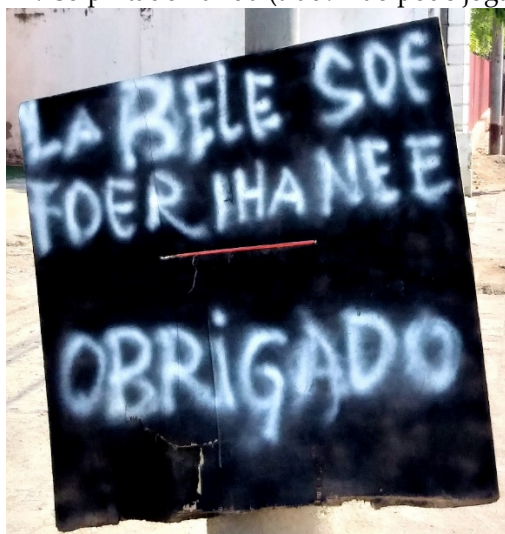 LA BELE SOE
FOER IHA NEE
OBRiGADO